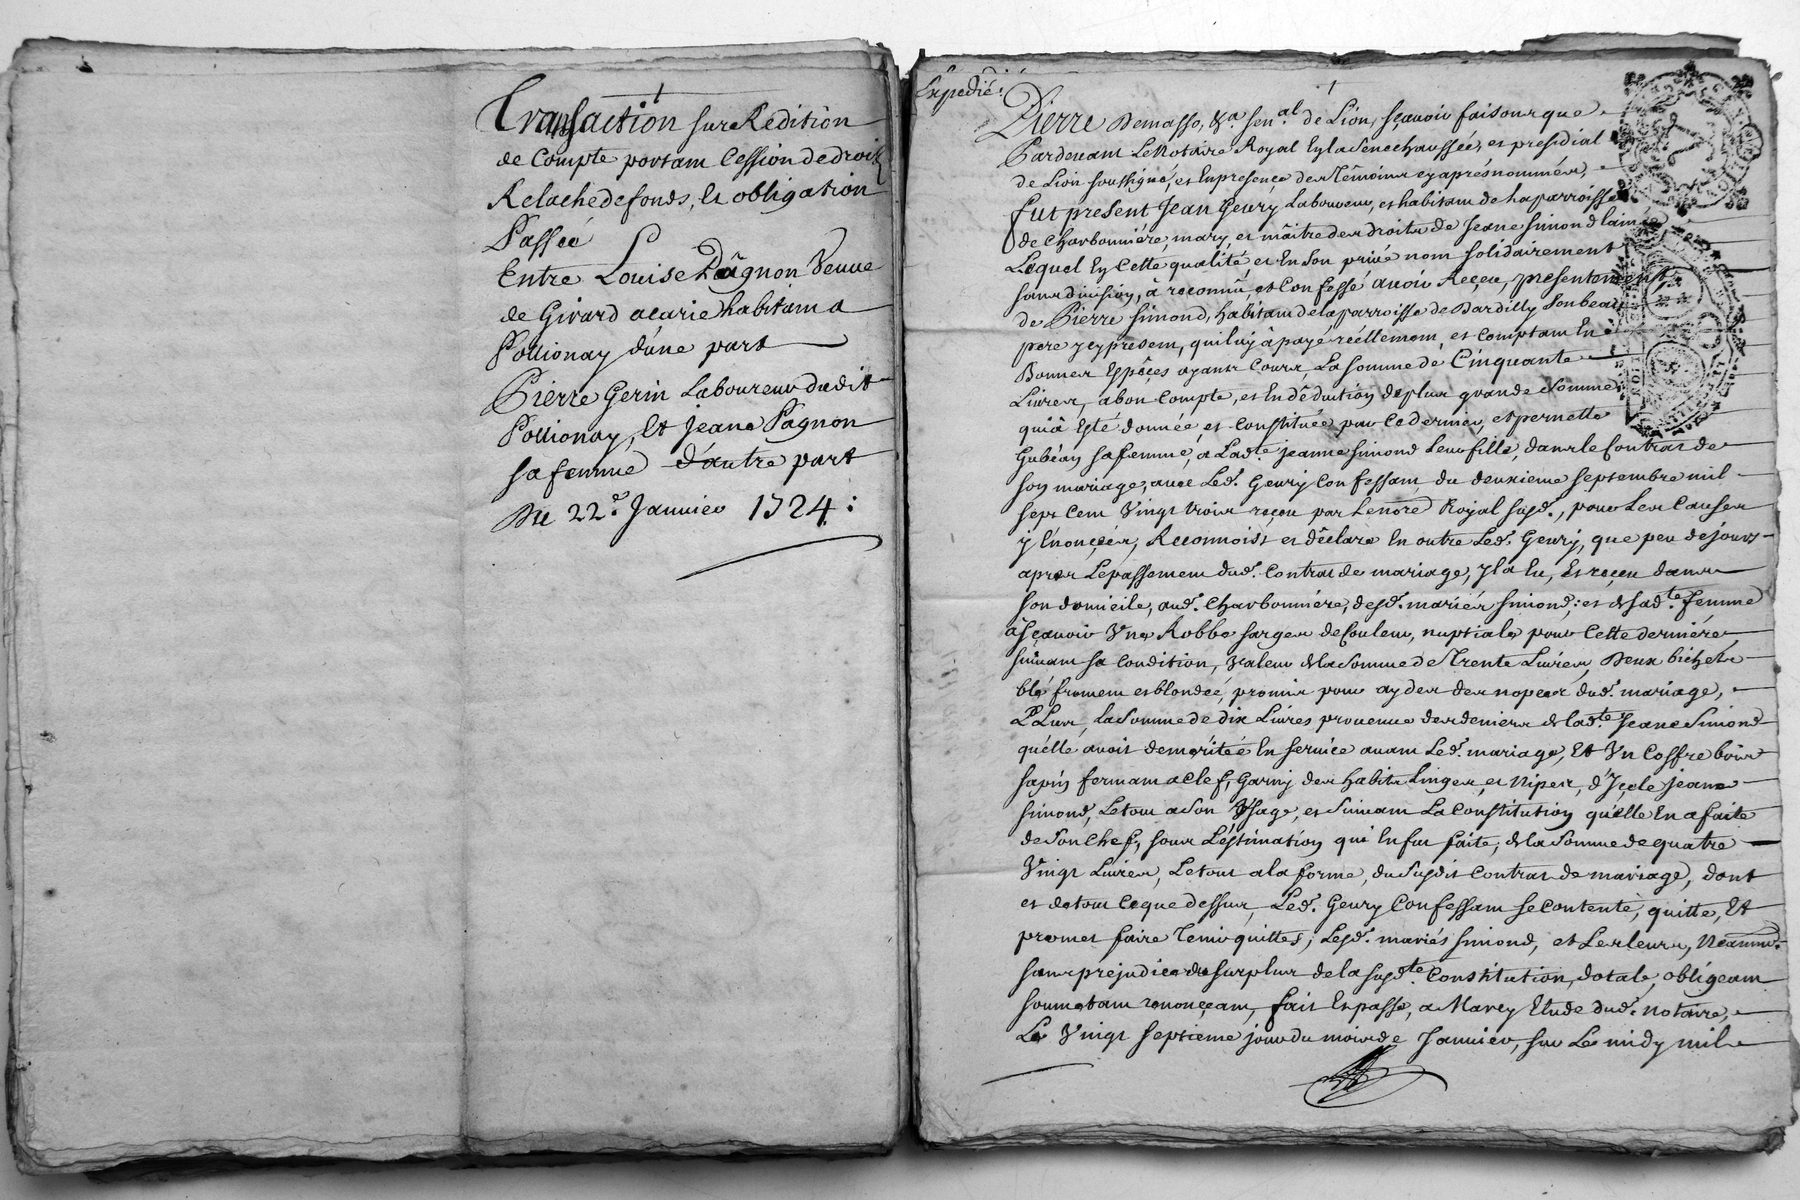 Transaction sur Redition
de Compte portam Cession de droit
Relache de fonds, et obligation
Passée
Entre Louise Pâgnon Veuve
de Girard acarie habitam a
Pollionay d'une part
Pierre Gerin Laboureur dudit
Pollionay, Et jeane Pagnon
sa femme d'autre part
Du 22.e Janvier 1724 :
Expedié :
Pierre Demasso, &.a sen.al de Lion, sçavoir faisons que
Pardevant Le Notaire Royal En la Senechaussée, et presidial
de Lion soussigné, et En presence des Temoins cy aprés nommés,
fut present Jean Geury Laboureur, et habitam de la parroisse
de Charbonniére, mary, et maitre des droits de Jeane Simond lainée
Lequel En Cette qualité et En son privé nom solidairement
sans division, à reconnû, et Confessé avoir Reçeu, presentement
de Pierre Simond, habitam de la parroisse de Dardilly son beau
pere y cy presem, qui luy à payé réellemem, et Comptam En
Bonnes Espêçes ayants Cours, La somme de Cinquante
Livres, a bon Compte, et En dêduction de plus grande Somme
qui à Esté donnée, et Constituée par Ce dernier, et pernette
Gubéan sa femme, a Lad.te jeanne simond Leur fille, dans le Contrat de
son mariage, avec Led.t Geury Confessam du deuxieme septembre mil
sept Cent Vingt trois reçeu par Le no.re Royal susd.t, pour Les Causes
y Enonçées, Reconnoist et dêclare En outre Led.t Geury, que peu de jours
apres Le passement dud.t Contrat de mariage, Jl a Eu, Et reçeu dans
son domicile, aud.t Charbonniére, desd.ts mariés simond, et de sad.te femme
à sçavoir Une Robbe sarges de Couleur, nuptiale pour Cette derniére
suivam sa Condition, Valeur de la Somme de Trente Livres, Deux bichets
blé fromem et blondée, promis pour ayder des nopces dud.t mariage,
Plus, la Somme de dix Livres provenue des deniers de lad.te Jeane Simond
qu'elle avoit demeritée En service avam Led.t mariage, Et Un Coffre bois
sapin fermam a Clef, Garny des habits Linges, et Nipes, d'Jçele jeane
simond, Le tout a Son Usage, et Suivam La Constitution qu'elle En a faite
de Son Chef, sous L'éstimation qui En fut faite, de la Somme de quatre
Vingt Livres, Le tout a la forme, du Susdit Contrat de mariage, dont
et de tout Ce que dessus, Led.t Geury Confessam se Contente, quitte, Et
promet faire Tenir quittes, Lesd.ts mariés simond, et Les leurs, Neanm.s
sans prejudice du surplus de la susd.te Constitution, dotale, obligeam
soumettam renonçeam, fait Et passé, a Marcy Etude dud.t Notaire,
Le Vingt septieme jour du mois de Janvier, sur Le midy mil